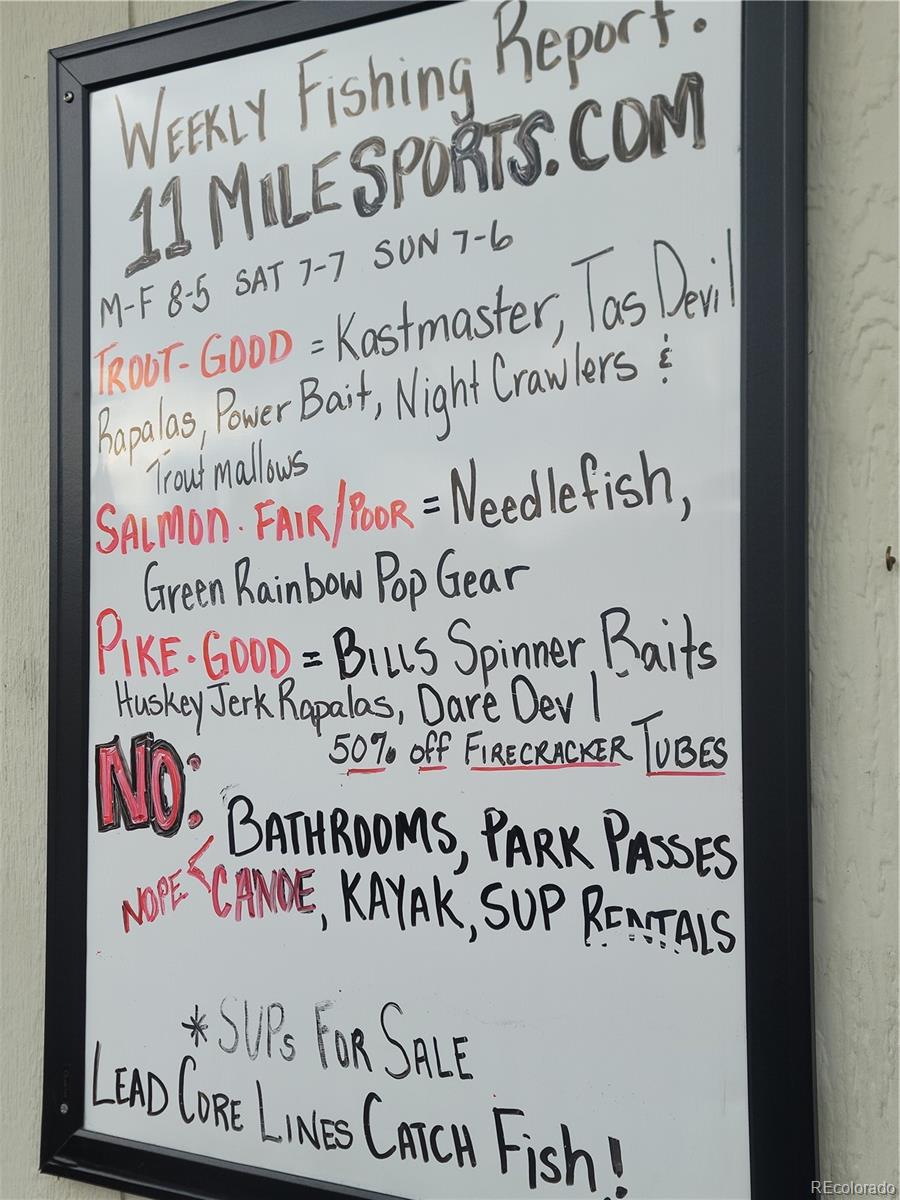 WEEKLY Fishing Report.
11 MILE SPORTS.COM
M-F 8-5 SAT 7-7 SUN 7-6
TROUT-GOOD = Kastmaster, Tas Devil
Rapalas, Power Bait, Night Crawlers &
Trout mallows
SALMON. FAIR/POOR = Needlefish,
Green Rainbow Pop Gear
PIKE. GOOD = BILLS Spinner Baits
Huskey Jerk Rapalas, Dare Dev l
50% off FIRECRACKER TUBES
NO:
BATHROOMS, PARK PASSES
NOPE < CANOE, KAYAK, SUP RENTALS
* SUPs FOR SALE
LEAD CORE LINES CATCH Fish!
REcolorado